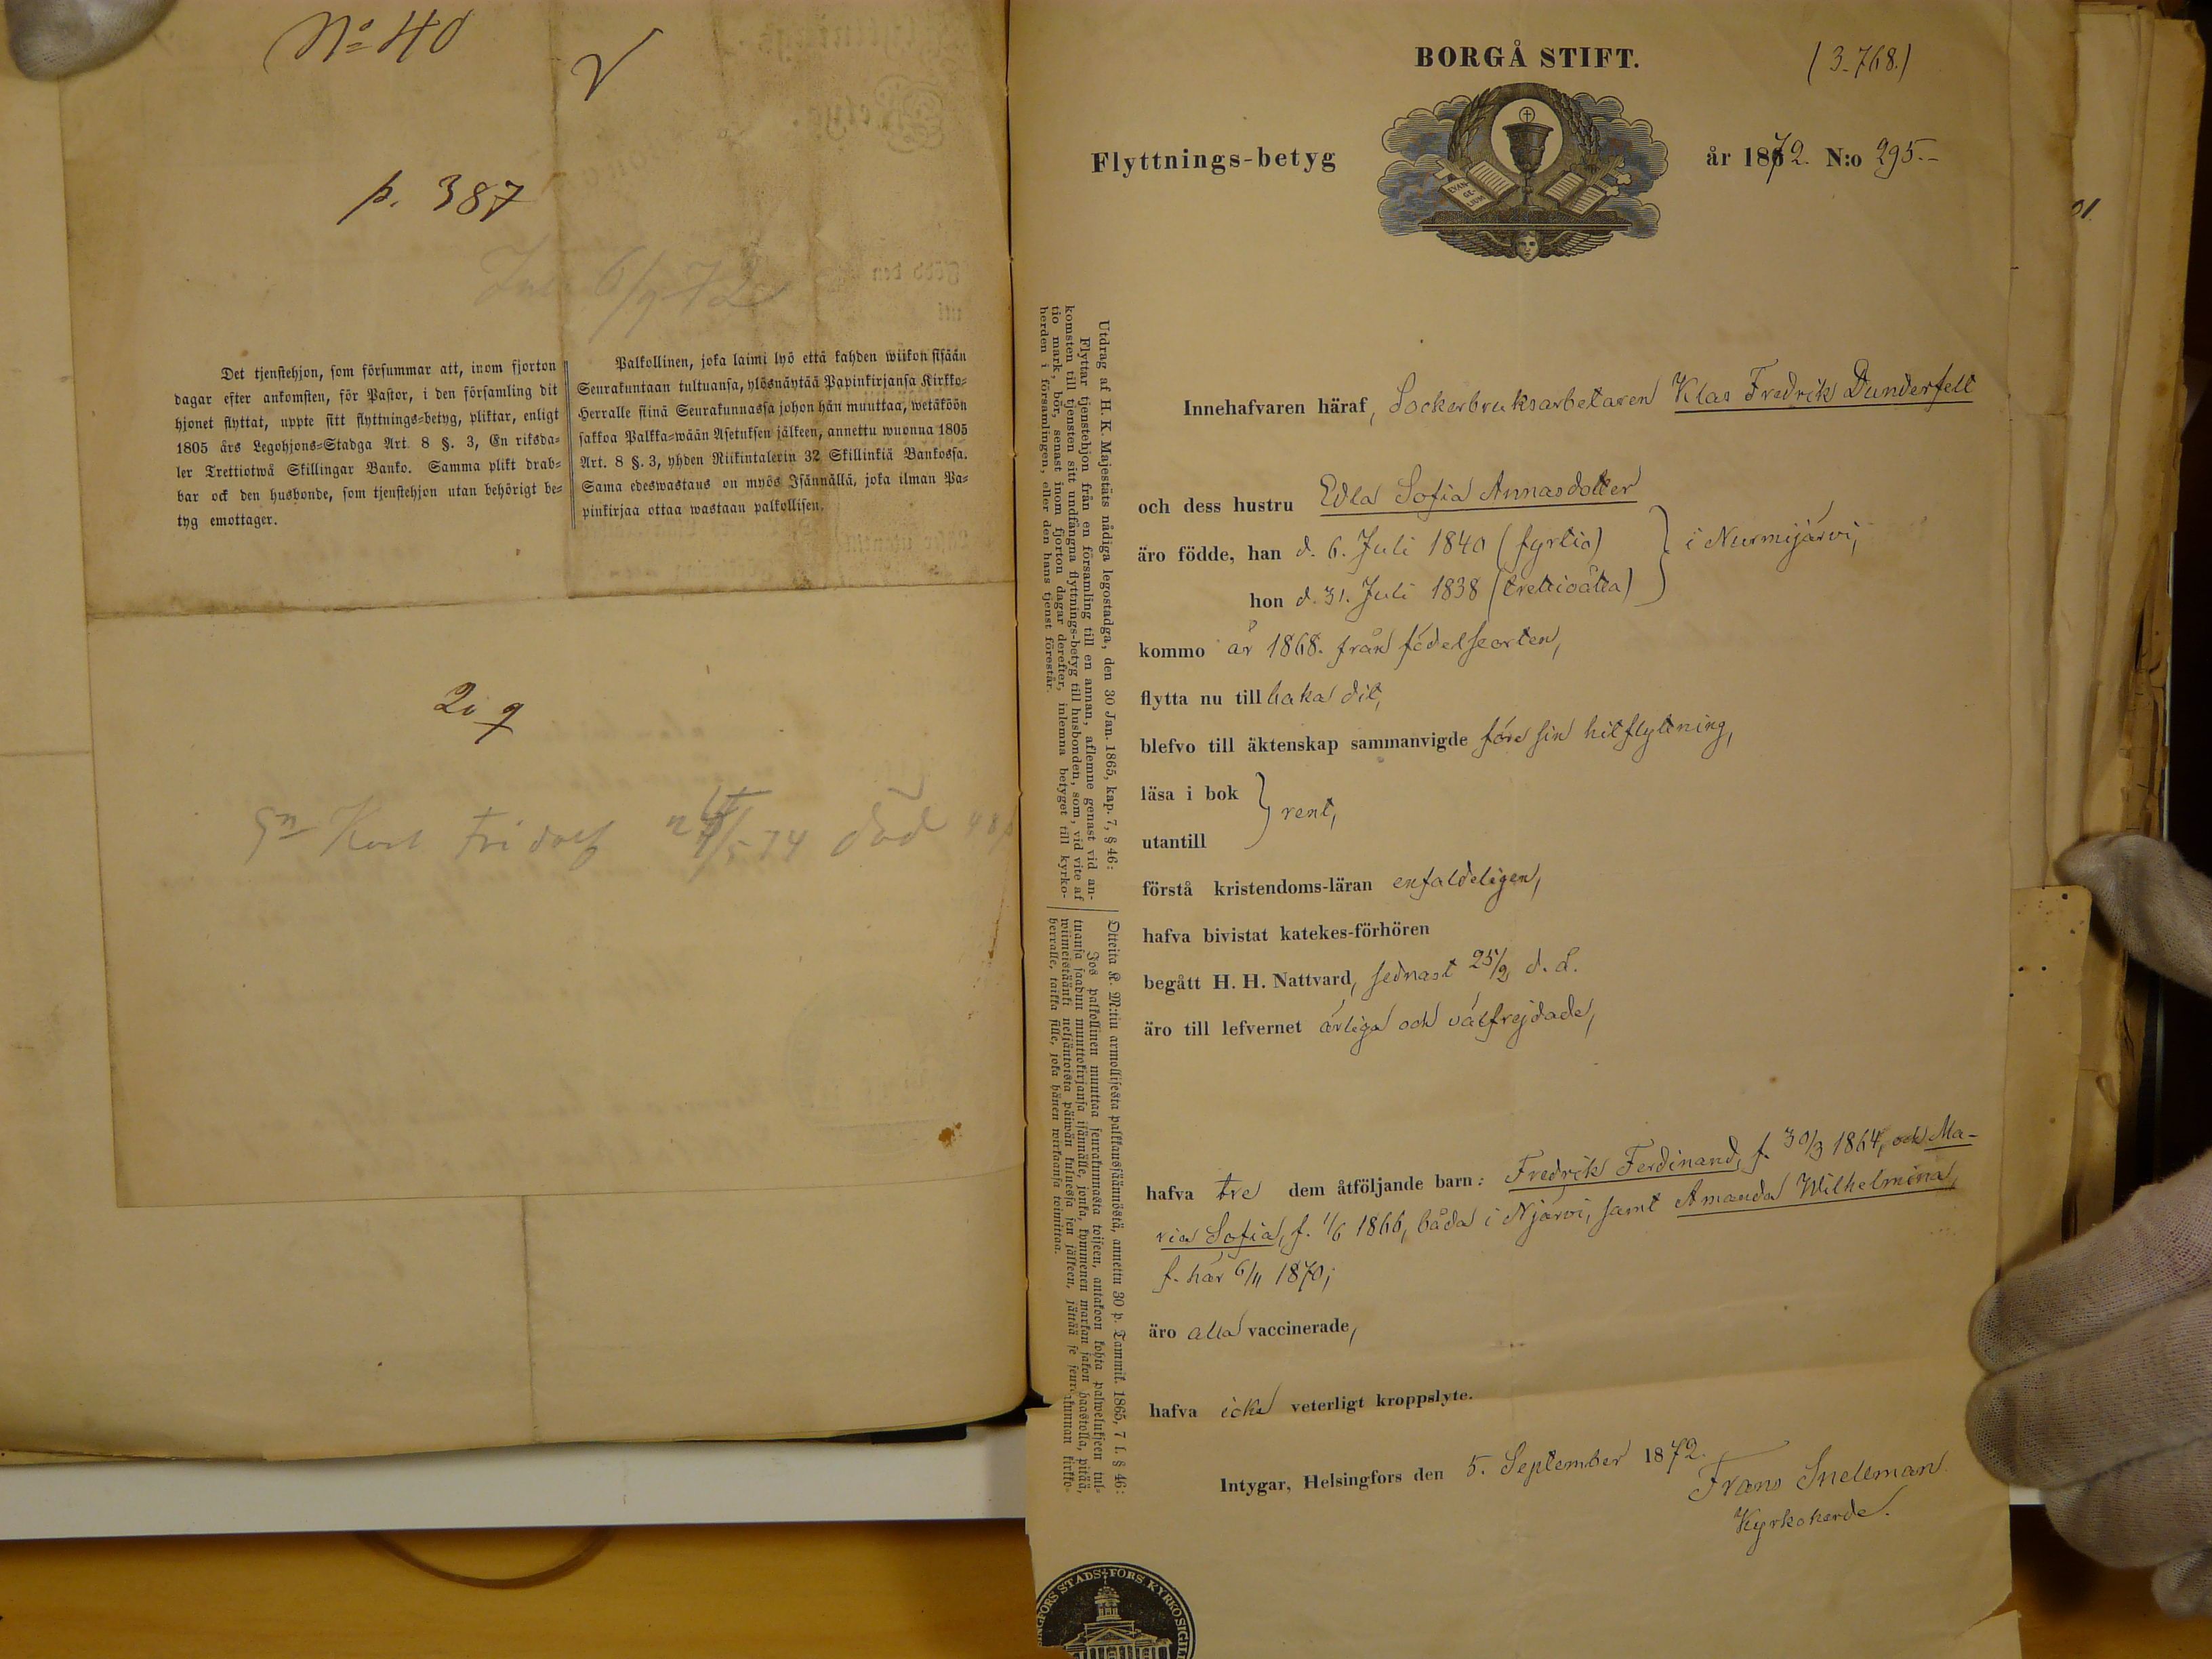 No 40
p. 387
Det tjenstehjon, som försummar att, inom fjorton
dagar efter ankomsten, för Pastor, i den församling dit
hjonet flyttat, uppte sitt flyttnings=betyg, pliktar, enligt
1805 års Legohjons=Stadga Art. 8 §. 3, En riksda=
ler Trettiotwå Skillingar Banko. Samma plikt drab=
bar ock den husbonde, som tjenstehjon utan behörigt be=
tyg emottager.
Palkollinen, joka laimi lyö että kahden wiikon sisään
Seurakuntaan tultuansa, ylösnäytää Papinkirjansa Kirkko=
Herralle siinä Seurakunnassa johon hän muuttaa, wetäköön
sakkoa Palkka=wään Asetuksen jälkeen, annettu wuonna 1805
Art. 8 §. 3, yhden Riikintalerin 32 Skillinkiä Bankossa.
Sama edeswastaus on myös Isännällä, joka ilman Pa=
pinkirjaa ottaa wastaan palkollisen.
BORGÅ STIFT.
(3-768.)
Flyttnings-betyg
EVAN-
GE-
LIUM
år 1872. N:o 295.-
Utdrag af H. K. Majestäts nådiga legostadga, den 30 Jan. 1865, kap. 7, § 46:
Flyttar tjenstehjon från en församling till en annan, aflemne genast vid an-
komsten till tjensten sitt undfångna flyttnings-betyg till husbonden, som, vid vite af
tio mark, bör, senast inom fjorton dagar derefter, inlemna betyget till kyrko-
herden i församlingen, eller den hans tjenst förestår.
Otteita K. M:tin armollisesta palkkaussäännöstä, annettu 30 p. Tammik. 1865, 7 l. § 46:
Jos palkollinen muuttaa seurakunnasta toiseen, antakoon kohta palwelukseen tul=
tuansa saadun muuttokirjansa isännälle, jonka, kymmenen markan sakon haastolla, pitää,
wiimeistäänki neljäntoista päiwän kuluessa sen jälkeen, jättää se seurakunnan kirkko=
herralle, taikka sille, joka hänen wirkaansa toimittaa.
Innehafvaren häraf, Sockerbruksarbetaren Klas Fredrik Dunderfelt
och dess hustru Edla Sofia Annasdotter
äro födde, han d. 6. Juli 1840 (fyrtio)
i Nurmijärvi,
hon d. 31. Juli 1838 (trettioåtta)
kommo år 1868. från födelseorten,
flytta nu till baka dit,
blefvo till äktenskap sammanvigde före sin hitflyttning,
läsa i bok
rent,
utantill
förstå kristendoms-läran enfaldeligen,
hafva bivistat katekes-förhören
begått H. H. Nattvard, sednast 25/2 d. å.
äro till lefvernet ärliga och välfrejdade,
hafva tre dem åtföljande barn: Fredrik Ferdinand, f. 30/3 1864, och Ma-
ria Sofia, f. 1/6 1866, båda i Njärvi, samt Amanda Wilhelmina,
f. här 6/11 1870;
äro alla vaccinerade,
hafva icke veterligt kroppslyte.
Intygar, Helsingfors den 5. September 1872.
Frans Snellman.
Kyrkoherde.
INGFORS STADS FORS. KYRKOSIGILL